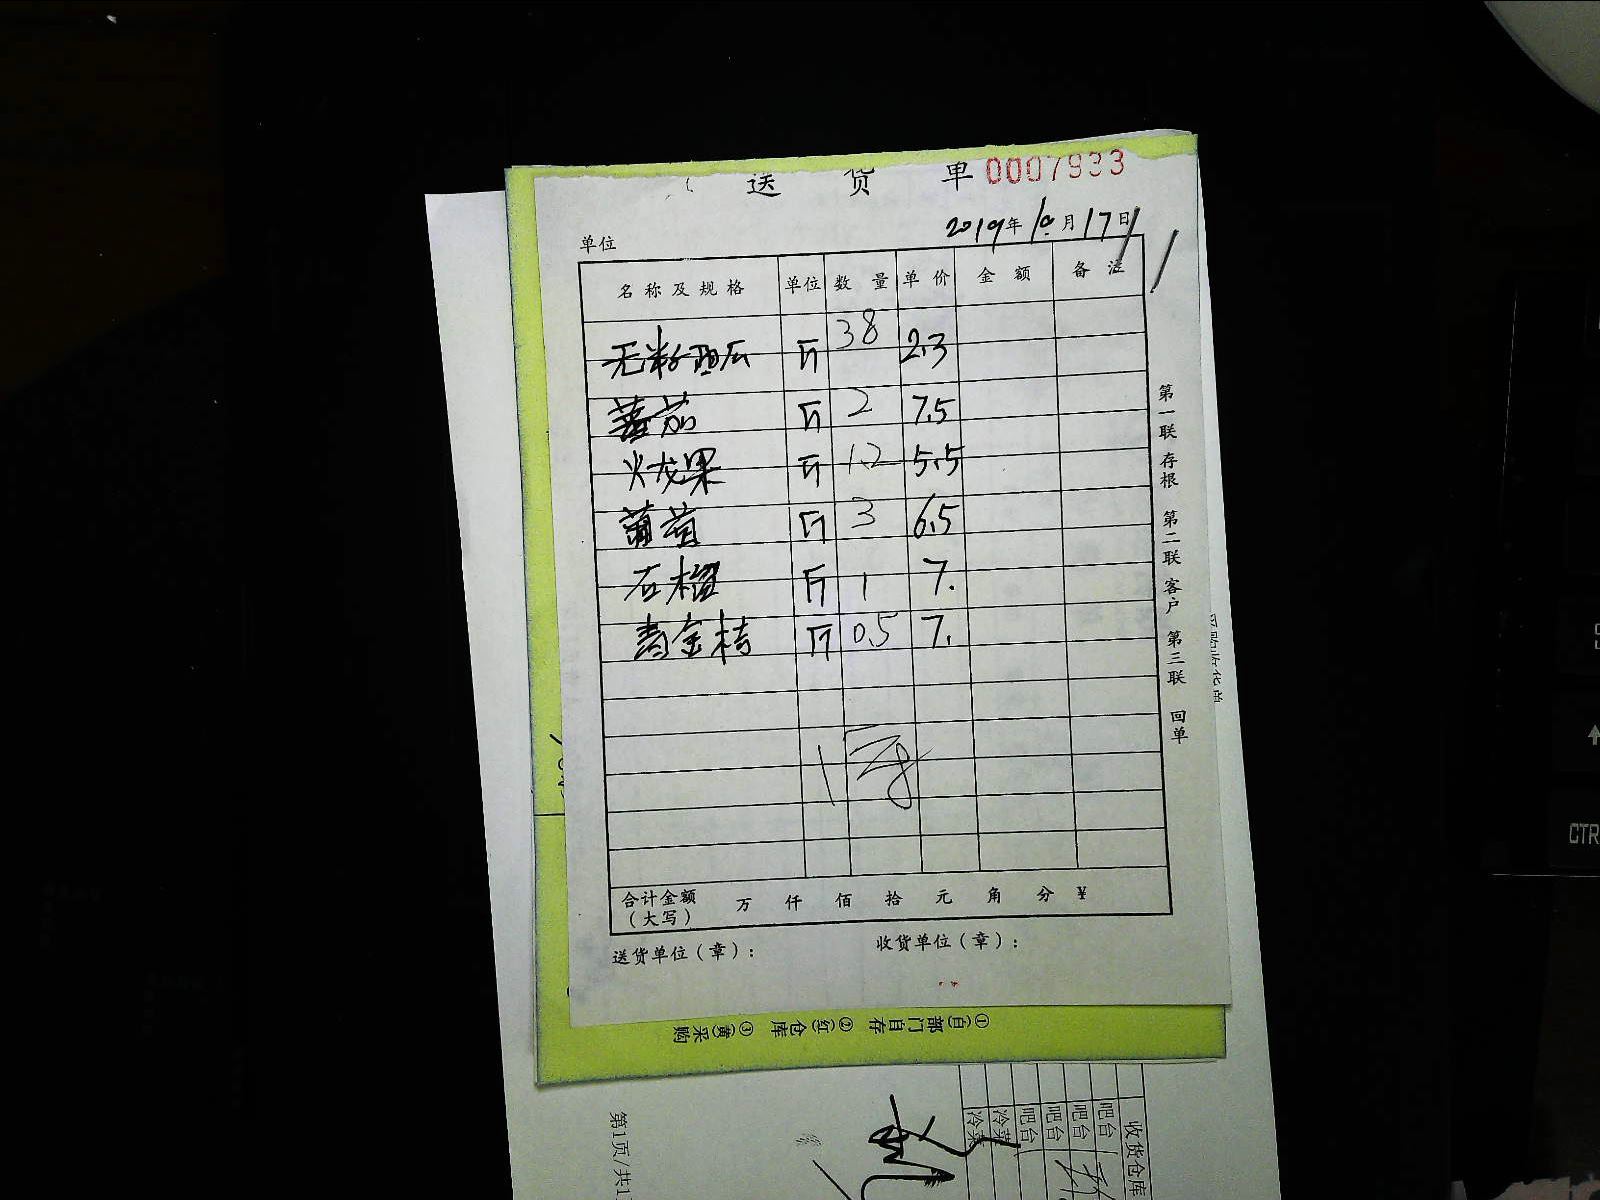 送 货 单 0007933
2019年10月17日
单位
名称及规格 单位 数量 单价 金额 备注
无籽西瓜 斤 38 2.3
蕃茄 斤 2 7.5
火龙果 斤 1.2 5.5
葡萄 斤 3 6.5
石榴 斤 1 7.
青金桔 斤 0.5 7.
合计金额 万 仟 佰 拾 元 角 分 ¥
（大写）
送货单位（章）： 收货单位（章）：
第一联 存根 第二联 客户 第三联 回单
①(白)部门自存 ②(红)仓库 ③(黄)采购
收货仓库
吧台
吧台
吧台
吧台
冷菜
冷菜
第1页/共1
CTR